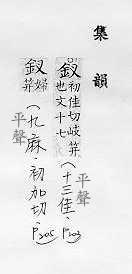 集韻
釵 初佳切岐笄也文十七(十三佳.)平聲 P103
釵 婦笄(九麻.初加切.)平聲 P205